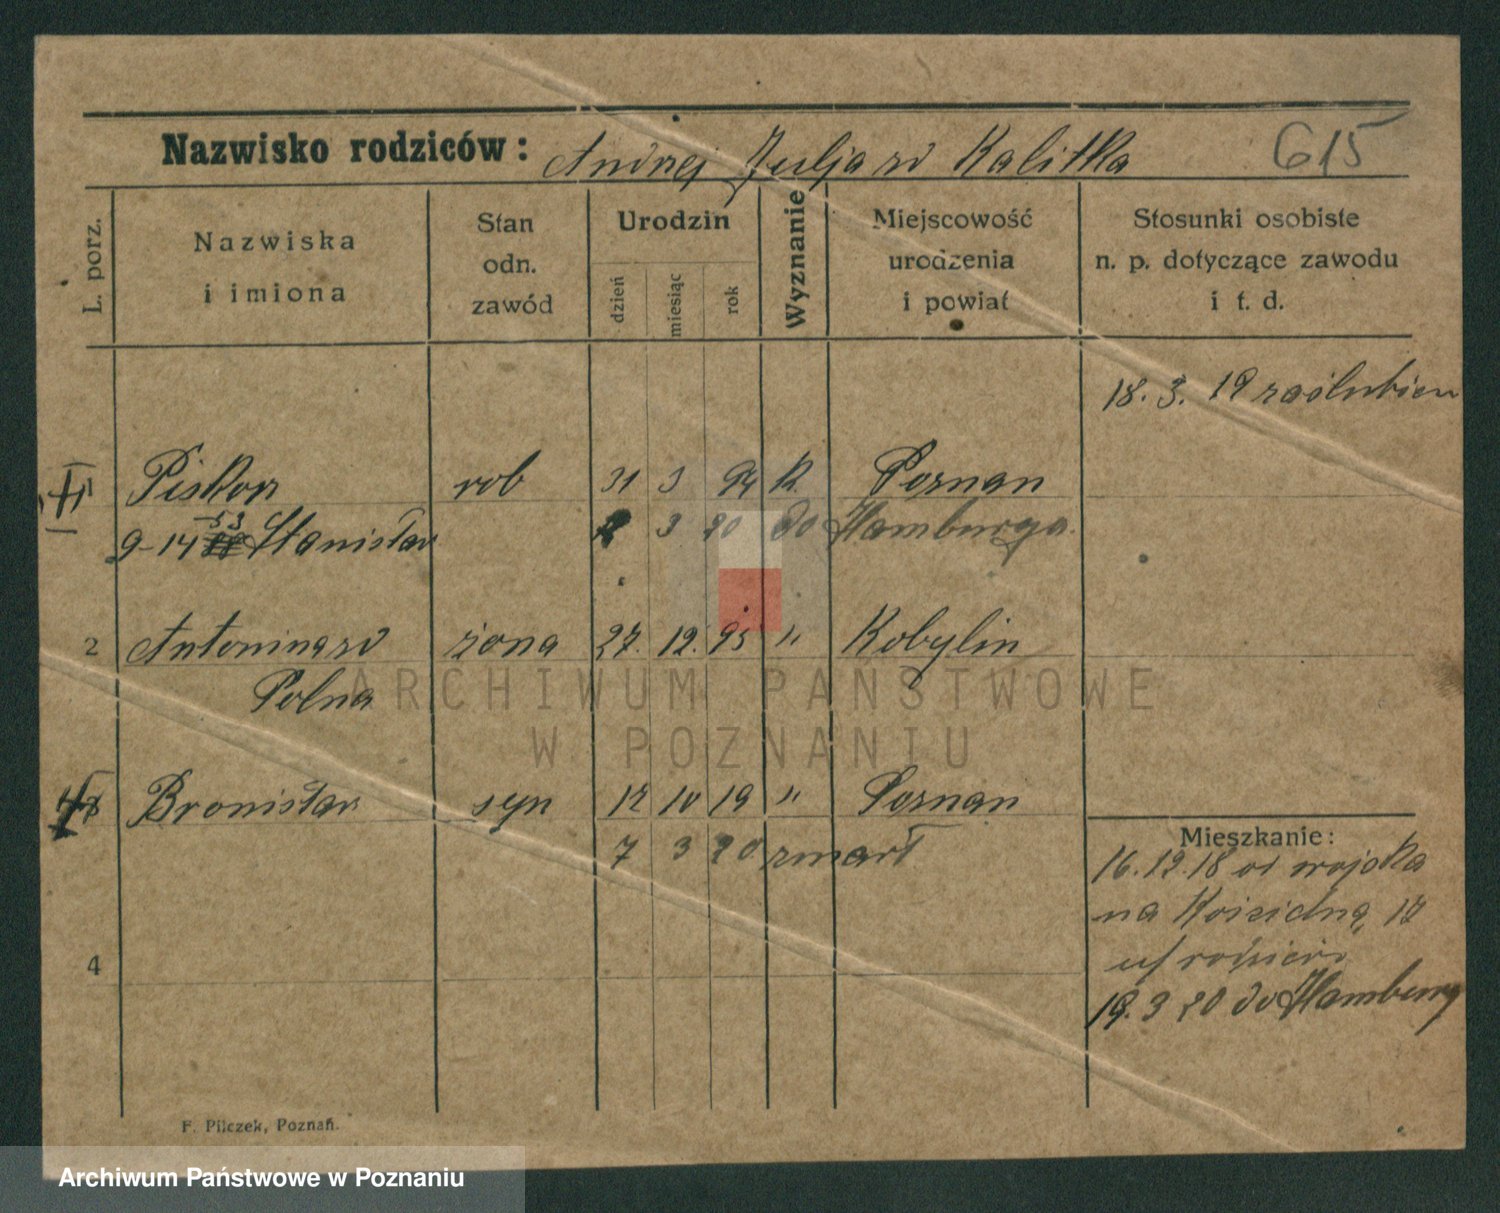 Nazwisko rodziców: Andrzej Julja zd Kalitka 615
L. porz.
Nazwiska
i imiona
Stan
odn.
zawód
Urodzin
dzień
miesiąc
rok
Wyznanie
Miejscowość
urodzenia
i powiat
Stosunki osobiste
n. p. dotyczące zawodu
i t. d.
18. 3. 19 zaślubien
Piskor rob 31 3 94 k. Poznan
9-14 Stanisław 3 20 do Hamburga.
2 Antonina zd żona 27. 12. 95 " Kobylin
Polna
Bronisław syn 12 10 19 " Poznan
7 3 20 zmarł
Mieszkanie:
16.12.18 od wojska
na 17
u/ rodziców
4
19. 3 20 do Hamburg
F. Pilczek, Poznań.
ARCHIWUM PAŃSTWOWE
W POZNANIU
Archiwum Państwowe w Poznaniu